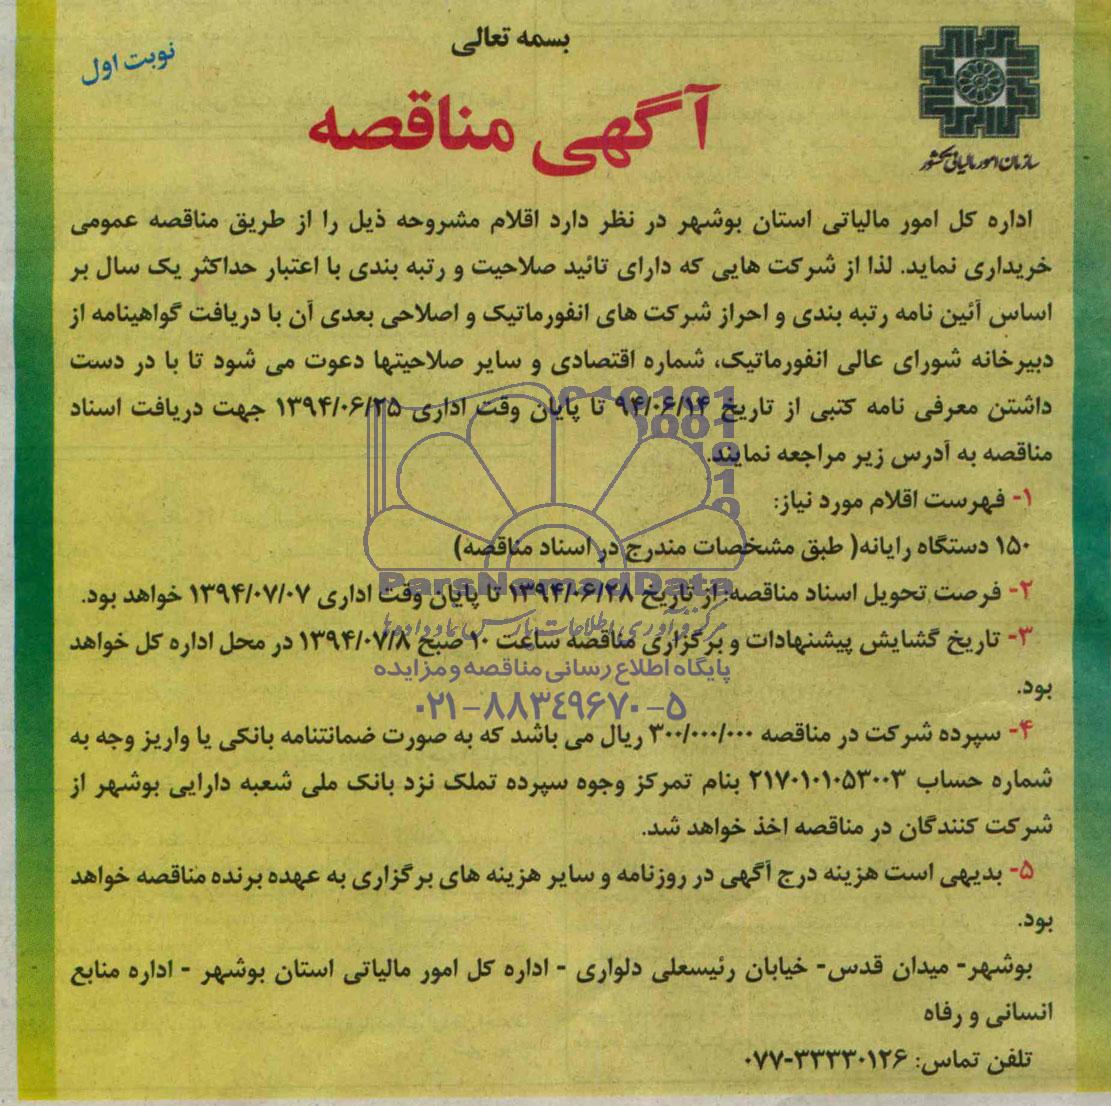 بسمه تعالی
نوبت اول
آگهی مناقصه
سازمان امور مالیاتی کشور
اداره کل امور مالیاتی استان بوشهر در نظر دارد اقلام مشروحه ذیل را از طریق مناقصه عمومی
خریداری نماید. لذا از شرکت هایی که دارای تائید صلاحیت و رتبه بندی با اعتبار حداکثر یک سال بر
اساس آئین نامه رتبه بندی و احراز شرکت های انفورماتیک و اصلاحی بعدی آن با دریافت گواهینامه از
دبیرخانه شورای عالی انفورماتیک، شماره اقتصادی و سایر صلاحیتها دعوت می شود تا با در دست
داشتن معرفی نامه کتبی از تاریخ ۹۴/۰۶/۱۴ تا پایان وقت اداری ۱۳۹۴/۰۶/۲۵ جهت دریافت اسناد
مناقصه به آدرس زیر مراجعه نمایند.
۱- فهرست اقلام مورد نیاز:
۱۵۰ دستگاه رایانه( طبق مشخصات مندرج در اسناد مناقصه)
ParsNamadData
۲- فرصت تحویل اسناد مناقصه: از تاریخ ۱۳۹۴/۰۶/۲۸ تا پایان وقت اداری ۱۳۹۴/۰۷/۰۷ خواهد بود.
مرکز فرآوری اطلاعات پارس نماد داده ها
۳- تاریخ گشایش پیشنهادات و برگزاری مناقصه ساعت ۱۰ صبح ۱۳۹۴/۰۷/۸ در محل اداره کل خواهد
پایگاه اطلاع رسانی مناقصه و مزایده
بود.
۰۲۱-۸۸۳۴۹۶۷۰-۵
۴- سپرده شرکت در مناقصه ۳۰۰/۰۰۰/۰۰۰ ریال می باشد که به صورت ضمانتنامه بانکی یا واریز وجه به
شماره حساب ۲۱۷۰۱۰۱۰۵۳۰۰۳ بنام تمرکز وجوه سپرده تملک نزد بانک ملی شعبه دارایی بوشهر از
شرکت کنندگان در مناقصه اخذ خواهد شد.
۵- بدیهی است هزینه درج آگهی در روزنامه و سایر هزینه های برگزاری به عهده برنده مناقصه خواهد
بود.
بوشهر- میدان قدس- خیابان رئیسعلی دلواری - اداره کل امور مالیاتی استان بوشهر - اداره منابع
انسانی و رفاه
تلفن تماس: ۰۷۷-۳۳۳۳۰۱۲۶